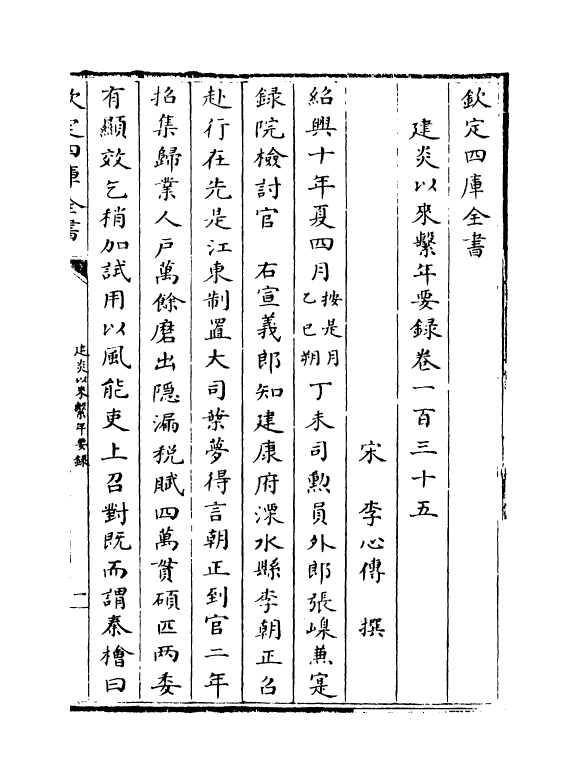 欽定四庫全書
建炎以來繫年要録卷一百三十五
宋 李心傳 撰
紹興十年夏四月按是月乙巳朔丁未司勲員外郎張嵲兼寔
録院檢討官 右宣義郎知建康府溧水縣李朝正召
赴行在先是江東制置大司葉夢得言朝正到官二年
招集歸業人戸萬餘磨出隠漏税賦四萬貫碩匹兩委
有顯效乞稍加試用以風能吏上召對既而謂秦檜曰
欽定四庫全書
建炎以來繫年要録